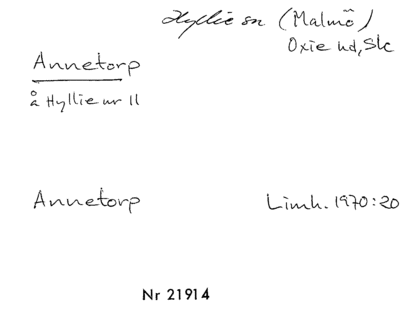 Hyllie sn (Malmö)
Oxie hd, Sk
Annetorp
å Hyllie nr 11
Annetorp Limh. 1970:20
Nr 21914